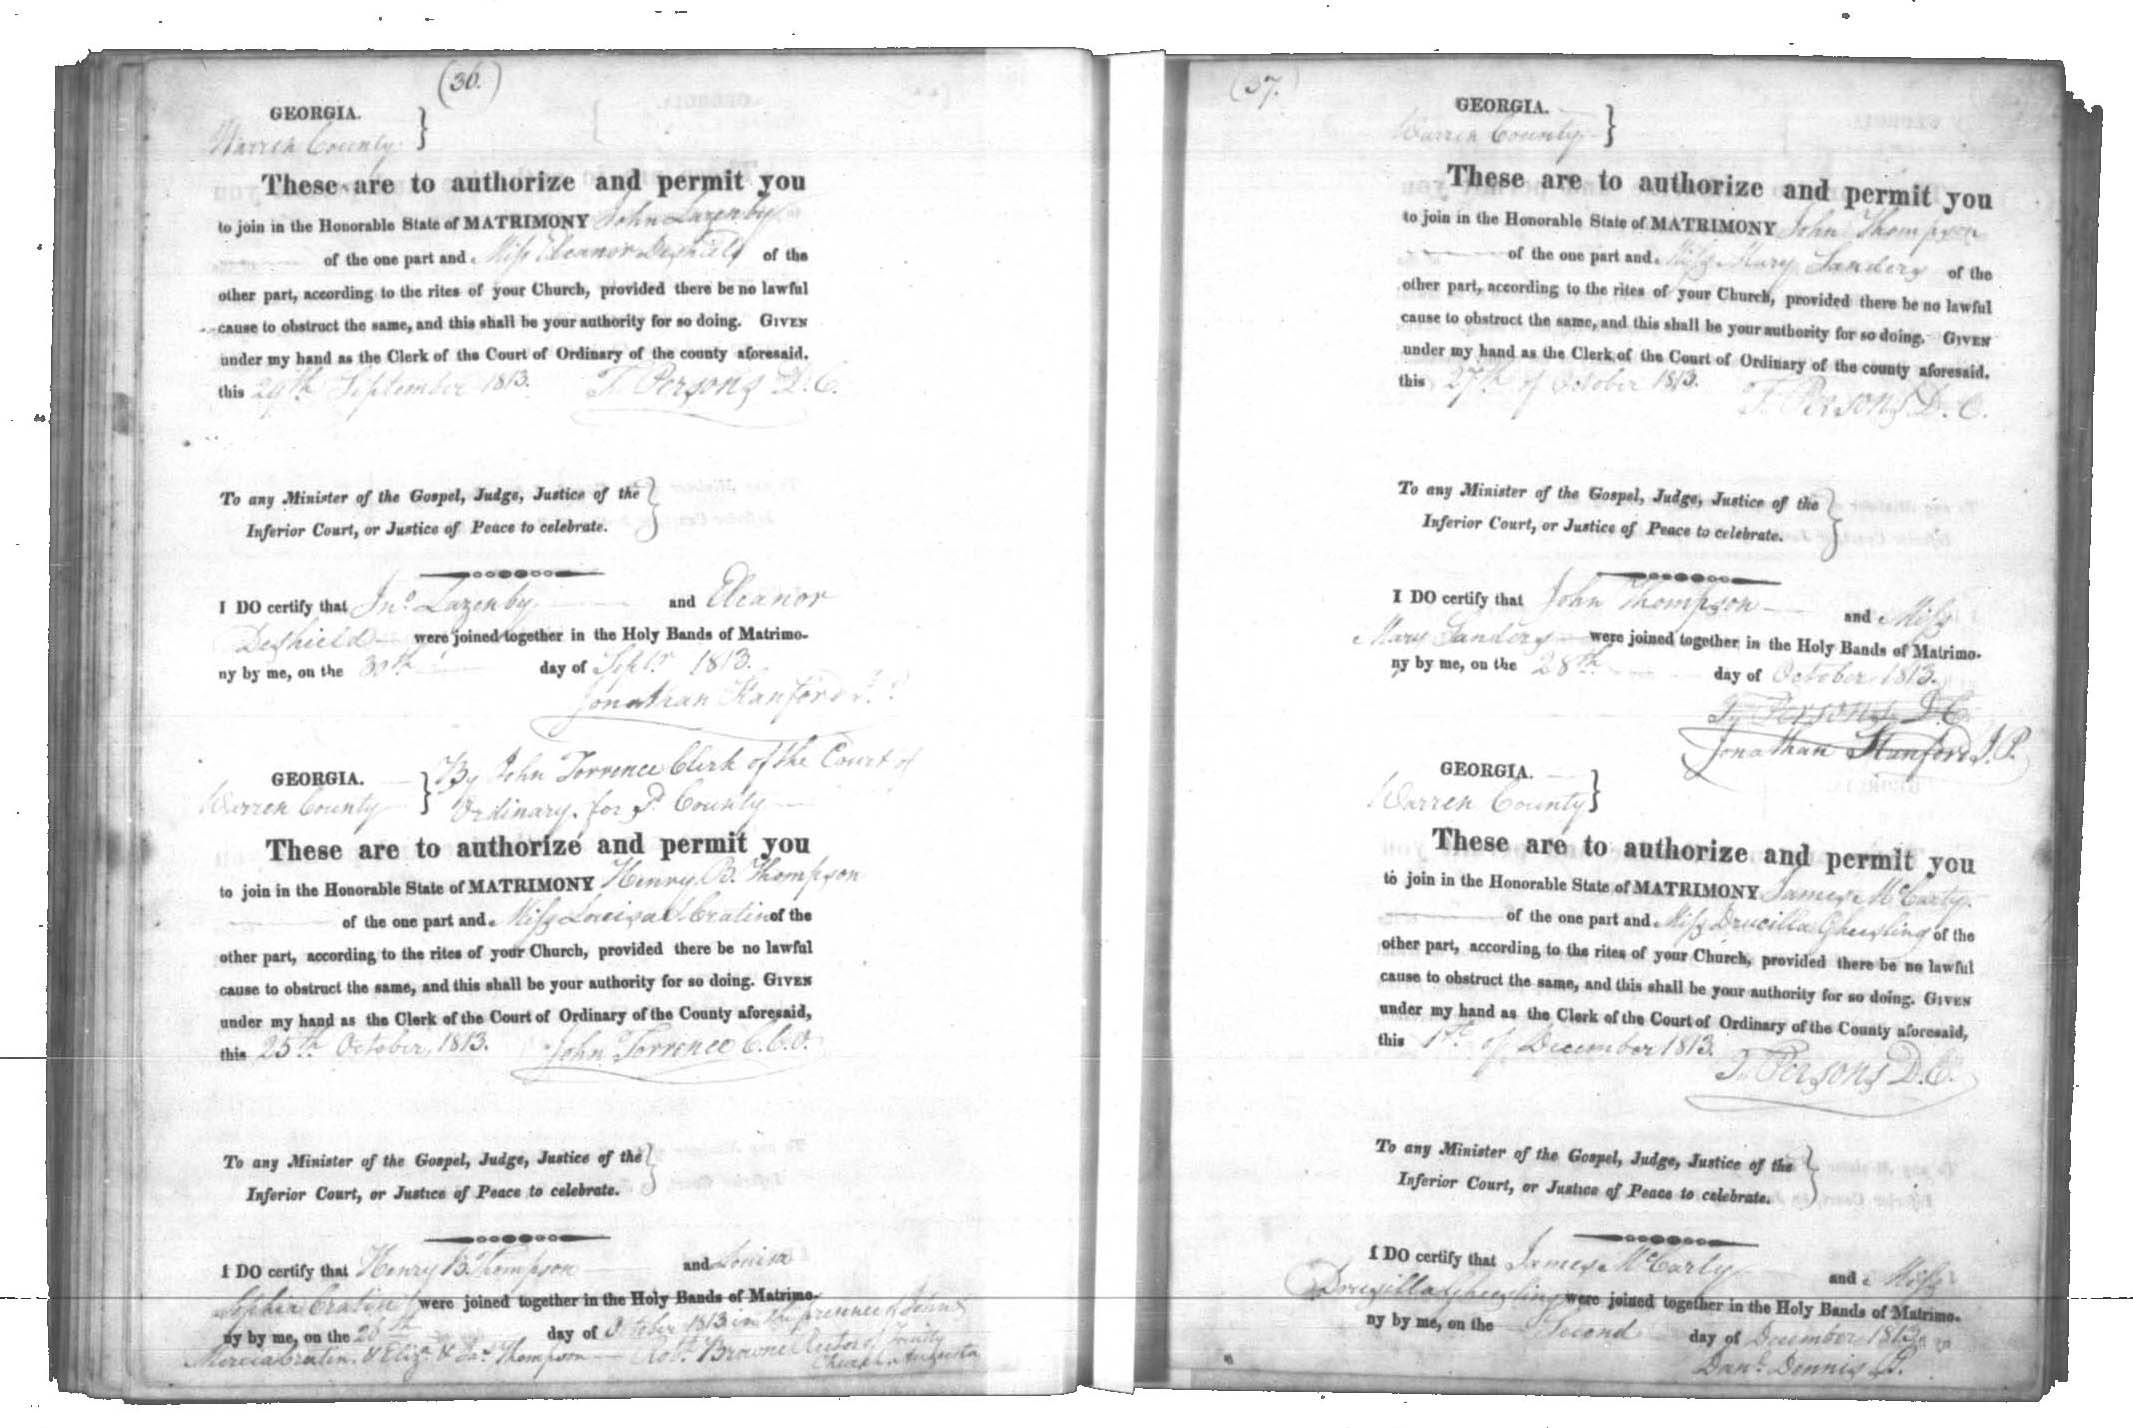 (36.)
GEORGIA. }
Warren County
These are to authorize and permit you
to join in the Honorable State of MATRIMONY John Lazenby
of the one part and Miss Eleanor Deshield of the
other part, according to the rites of your Church, provided there be no lawful
cause to obstruct the same, and this shall be your authority for so doing. GIVEN
under my hand as the Clerk of the Court of Ordinary of the county aforesaid.
this 29th September 1813. T. Persons D. C.
To any Minister of the Gospel, Judge, Justice of the }
Inferior Court, or Justice of Peace to celebrate.
I DO certify that Jno. Lazenby and Eleanor
Deshield were joined together in the Holy Bands of Matrimo-
ny by me, on the 30th day of Septr. 1813.
Jonathan Stanford J. P.
GEORGIA. } By John Torrence Clerk of the Court of
Warren County Ordinary for Sd. County
These are to authorize and permit you
to join in the Honorable State of MATRIMONY Henry B. Thompson
of the one part and Miss Louisa S. Cratin of the
other part, according to the rites of your Church, provided there be no lawful
cause to obstruct the same, and this shall be your authority for so doing. GIVEN
under my hand as the Clerk of the Court of Ordinary of the County aforesaid,
this 25th October, 1813. John Torrence C.C.O.
To any Minister of the Gospel, Judge, Justice of the }
Inferior Court, or Justice of Peace to celebrate.
I DO certify that Henry B Thompson and Louisa
Sophia Cratin were joined together in the Holy Bands of Matrimo-
ny by me, on the 26th day of October 1813 in the presence of
Mercia Cratin & Eliza & Jas. Thompson Robt. Browne Rector of Trinity
Church Augusta
(37.)
GEORGIA. }
Warren County
These are to authorize and permit you
to join in the Honorable State of MATRIMONY John Thompson
of the one part and Miss Mary Landers of the
other part, according to the rites of your Church, provided there be no lawful
cause to obstruct the same, and this shall be your authority for so doing. GIVEN
under my hand as the Clerk of the Court of Ordinary of the county aforesaid.
this 27th of October 1813. T. Persons D. C.
To any Minister of the Gospel, Judge, Justice of the }
Inferior Court, or Justice of Peace to celebrate.
I DO certify that John Thompson and Miss
Mary Landers were joined together in the Holy Bands of Matrimo-
ny by me, on the 28th day of October 1813.
T. Persons D. C.
Jonathan Stanford J. P.
GEORGIA. }
Warren County
These are to authorize and permit you
to join in the Honorable State of MATRIMONY James McCarty
of the one part and Miss Drucilla Gheesling of the
other part, according to the rites of your Church, provided there be no lawful
cause to obstruct the same, and this shall be your authority for so doing. GIVEN
under my hand as the Clerk of the Court of Ordinary of the County aforesaid,
this 1st of December 1813. T. Persons D. C.
To any Minister of the Gospel, Judge, Justice of the }
Inferior Court, or Justice of Peace to celebrate.
I DO certify that James McCarty and Miss
Drucilla Gheesling were joined together in the Holy Bands of Matrimo-
ny by me, on the Second day of December 1813
Danl. Dennis